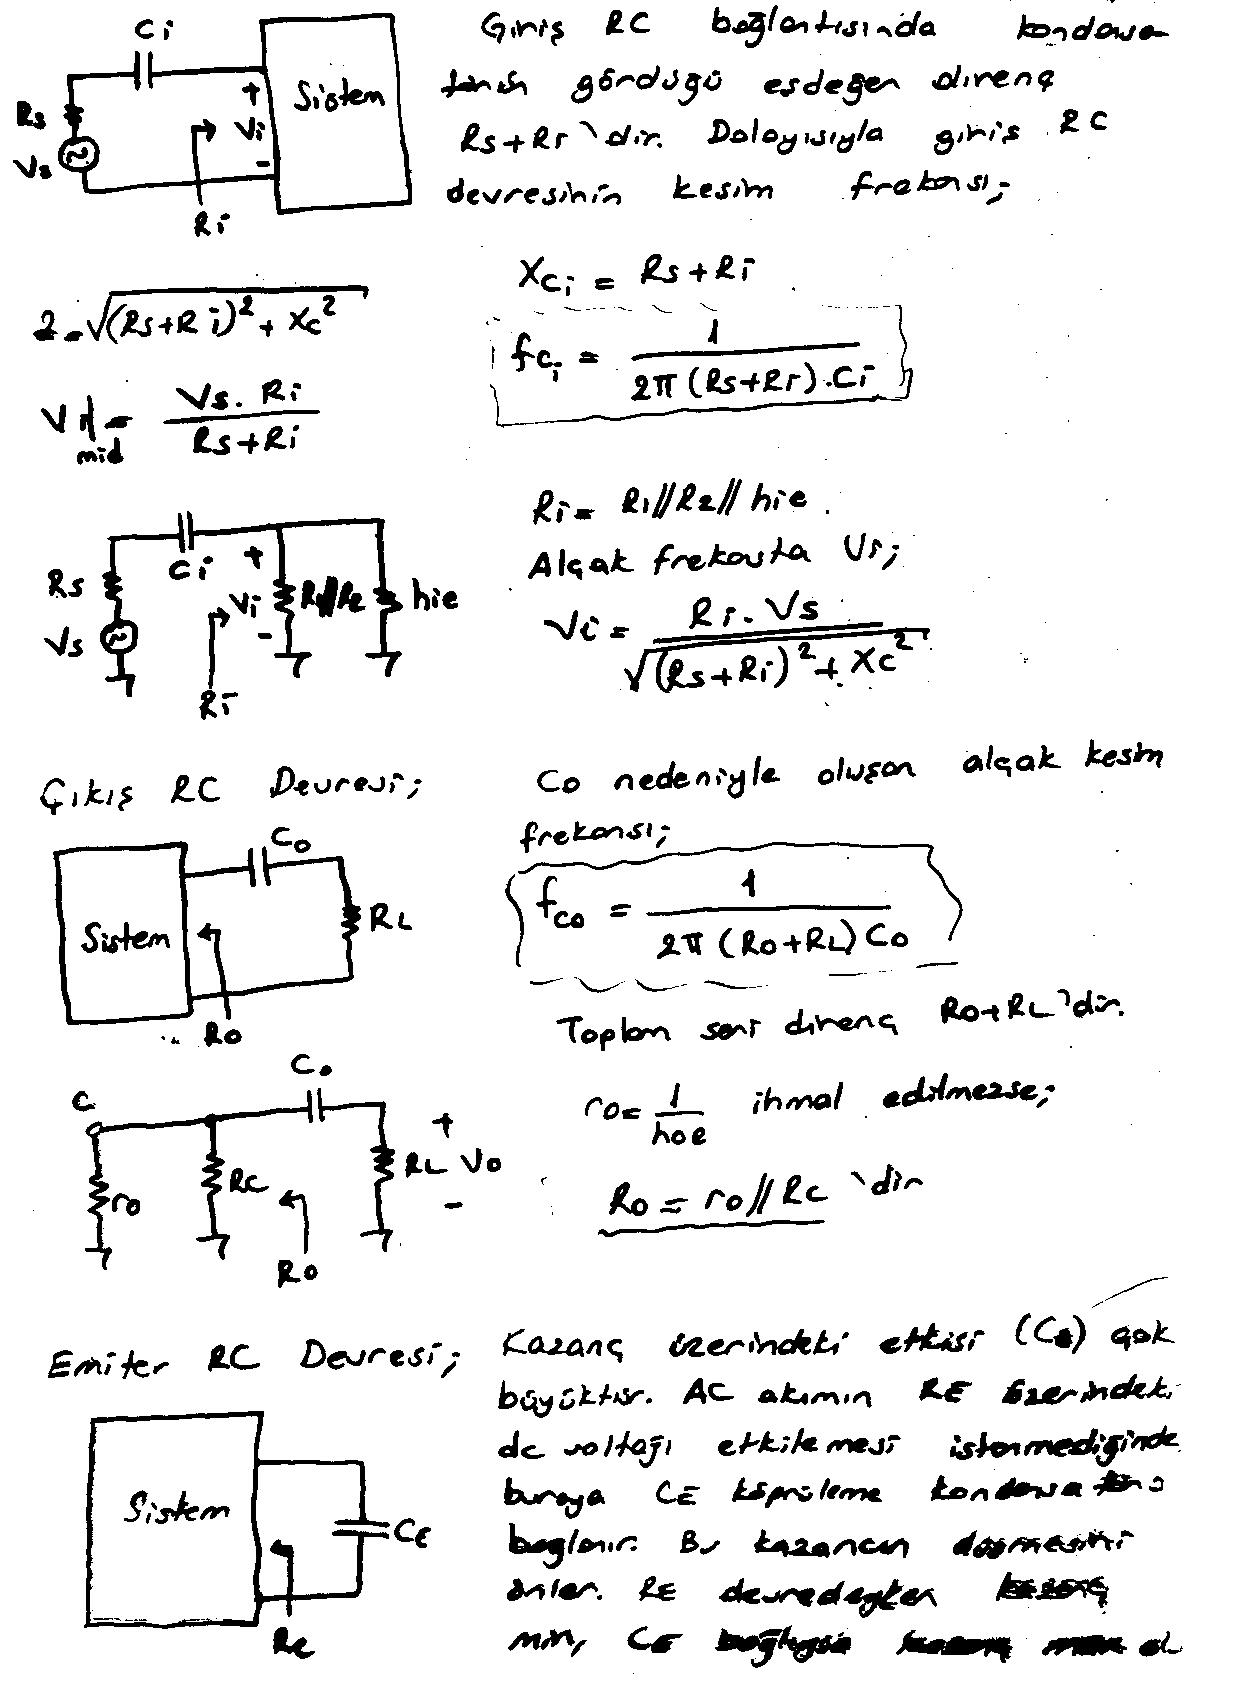 Giriş RC bağlantısında kondansa-
törün gördüğü eşdeğer direnç
Rs+Ri 'dir. Dolayısıyla giriş RC
devresinin kesim frekansı;
Ci
Rs
Vs
+
Vi
-
Ri
Sistem
Xci = Rs+Ri
Z=√(Rs+Ri)²+Xc²
fci = 1 / 2π(Rs+Ri).Ci
Vi|mid = Vs.Ri / Rs+Ri
Ri= R1//R2//hie
Alçak frekansta Vi;
Vi = Ri.Vs / √(Rs+Ri)²+Xc²
Rs
Vs
Ci
+
Vi
-
R1//R2
hie
Ri
Çıkış RC Devresi;
Co nedeniyle oluşan alçak kesim
frekansı;
fco = 1 / 2π(Ro+RL)Co
Sistem
Co
RL
Ro
Toplam seri direnç Ro+RL 'dir.
ro= 1/hoe ihmal edilmezse;
Ro = ro//Rc 'dir
C
ro
Rc
Co
RL
+
Vo
-
Ro
Emiter RC Devresi;
Kazanç üzerindeki etkisi (CE) çok
büyüktür. AC akımın RE üzerindeki
dc voltajı etkilemesi istenmediğinde
buraya CE köprüleme kondansatörü
bağlanır. Bu kazancın düşmesini
önler. RE devredeyken kazanç
min, CE bağlıysa kazanç
Sistem
CE
Re